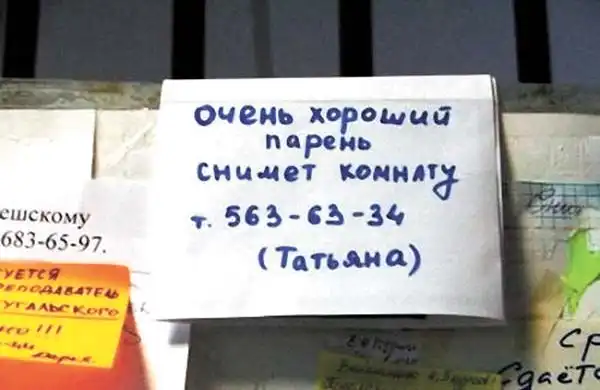 очень хороший
парень
снимет комнату
т. 563-63-34
(Татьяна)
ешскому
683-65-97.
уется
реподаватель
тугальского
!!!
Ср
Сдаётс